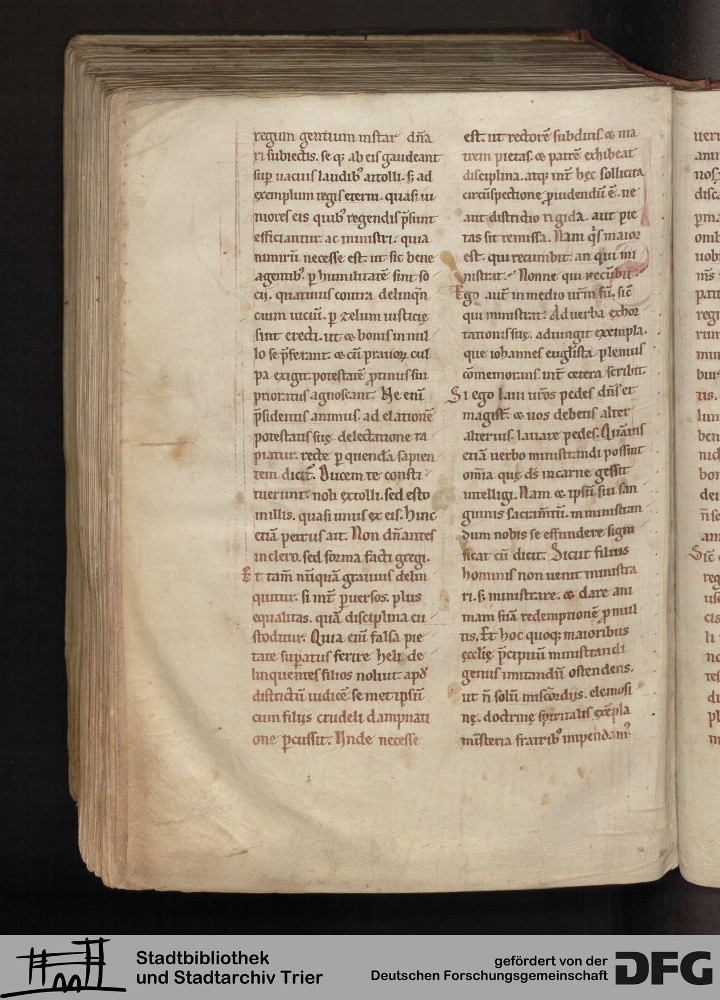 regum gentium instar dn̄a
ri subiectis. se q; ab eis gaudeant
sup uacuis laudib; attolli. s; ad
exemplum regis eterni. quasi iu
niores eis quib; regendis p̄sunt
efficiantur. ac ministri. quia
nimirū necesse est. ut sic bene
agentib; p humilitatē sint so
cij. quatinus contra delinq̄n
tium uiciū. p zelum iusticię
sint erecti. ut & bonis in nul
lo se p̄ferant. & cū prauoꝝ cul
pa exigit. potestatē ꝓtinus sui
prioratus agnoscant. Ne enī
p̄sidentis animus. ad elationē
potestatis suę delectatione ra
piatur. recte p quendā sapien
tem dicit̄. Ducem te consti
tuerunt. noli extolli. sed esto
in illis. quasi unus ex eis. Hinc
etiā petrus ait. Non dn̄antes
in clero. sed forma facti gregi.
Et tam̄ nūquā grauius delin
quitur. si int̄ puersos. plus
equalitas. quā disciplina cu
stoditur. Quia enī falsa pie
tate supatus ferire heli de
linquentes filios noluit. apd
districtū iudicē se met ipsū
cum filijs crudeli dampnati
one pcussit. Unde necesse
est. ut rectorē subditis. & ma
trem pietas. & patrē exhibeat
disciplina. atq; int̄ hec sollicita
circūspectione ꝓuidendū ē. ne
aut districtio rigida. aut pie
tas sit remissa. Nam q̄s maior
est. qui recumbit. an qui mi
nistrat. Nonne qui recūbit.
Ego aut̄ in medio ur̄m sū. sic̄
qui ministrat. Ad uerba exhor
tationis suę. adiungit exempla.
que iohannes euglīsta plenius
cōmemorans. int̄ cetera scribit.
Si ego laui uros pedes dn̄s et
magist̄. & uos debetis alter
alterius. lauare pedes. Quāuis
etiā uerbo ministrandi possint
om̄ia quę ds̄ in carne gessit
intelligi. Nam & ipsū sui san
guinis sacram̄tū. in ministran
dum nobis se effundere signi
ficat cū dicit. Sicut filius
hominis non uenit ministra
ri. s; ministrare. & dare ani
mam suā redemptionē ꝓ mul
tis. Et hoc quoq; maioribus
ecclīę p̄cipuū ministrandi
genus imitandū ostendens.
ut n̄ solū miscōrdijs. elemosi
nę. doctrinę spiritalis exēpla
ministeria fratrib; impendam;
Stadtbibliothek
und Stadtarchiv Trier
gefördert von der
Deutschen Forschungsgemeinschaft
DFG